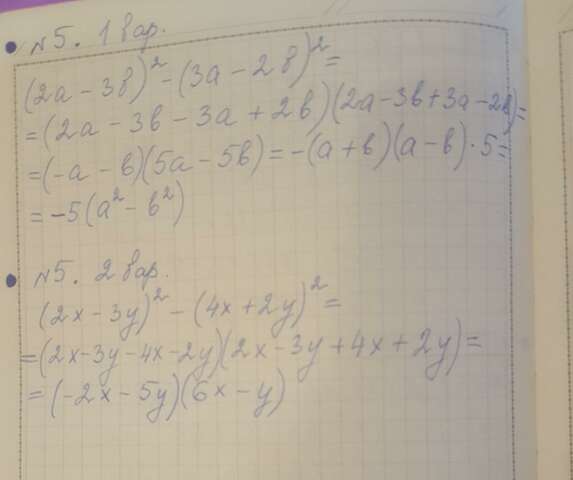 №5. 1 вар.
(2a - 3b)² - (3a - 2b)² =
= (2a - 3b - 3a + 2b)(2a - 3b + 3a - 2b) =
= (-a - b)(5a - 5b) = -(a + b)(a - b) · 5 =
= -5(a² - b²)
№5. 2 вар.
(2x - 3y)² - (4x + 2y)² =
= (2x - 3y - 4x - 2y)(2x - 3y + 4x + 2y) =
= (-2x - 5y)(6x - y)